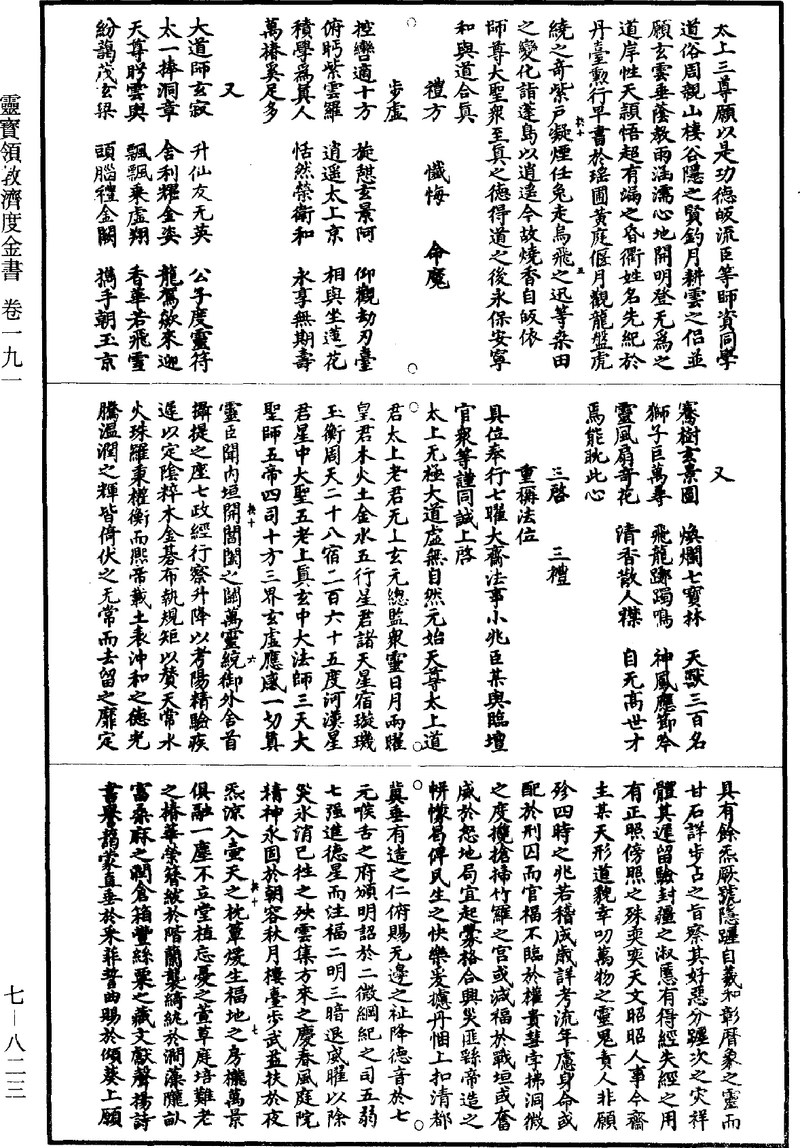 太上三尊願以是功德皈流臣等師資同學
道俗周親山棲谷隱之賢釣月耕雲之侶並
願玄雲垂蔭教雨涵濡心地開明登无為之
道岸性天穎悟超有漏之昏衢姓名先紀於
丹臺勲行早書於瑤圃黃庭偃月觀龍盤虎
繞之奇紫戶凝煙任兔走烏飛之迅等桑田
之變化詣蓬島以逍遥今故燒香自皈依
師尊大聖衆至真之德得道之後永保安寧
和與道合真
禮方 懺悔 命魔
步虛
控轡適十方 旋憩玄景阿 仰觀劫刃臺
俯眄紫雲羅 逍遥太上京 相與坐蓮花
積學為真人 恬然榮衛和 永享無期壽
萬椿奚足多
又
大道師玄寂 升仙友无英 公子度靈符
太一捧洞章 舍利耀金姿 龍駕欻來迎
天尊盻雲輿 飄飄乗虛翔 香華若飛雪
紛靄茂玄梁 頭腦禮金闕 携手朝玉京
又
騫樹玄景園 煥爛七寶林 天獸三百名
獅子巨萬尋 飛龍躑躅鳴 神鳳應節吟
靈風扇奇花 清香散人襟 自无高世才
焉能耽此心
三啓 三禮
重稱法位
具位奉行七曜大齋法事小兆臣某與臨壇
官衆等謹同誠上啓
太上无極大道虛無自然元始天尊太上道
君太上老君无上玄元總監衆靈日月兩曜
皇君木火土金水五行星君諸天星宿璇璣
玉衡周天二十八宿二百六十五度河漢星
君星中大聖五老上真玄中大法師三天大
聖師五帝四司十方三界玄虛應感一切真
靈臣聞内垣開閶闔之闢萬靈統御外舍首
攝提之座七政經行察升降以考陽精驗疾
遲以定陰粹木金碁布執規矩以贊天常水
火珠羅秉權衡而熙帝載土表沖和之德光
騰溫潤之輝皆倚伏之无常而去留之靡定
具有餘炁厥號隱躔自羲和彰曆象之靈而
甘石詳步占之旨察其好惡分躔次之灾祥
體其遲留驗封疆之淑慝有得經失經之用
有正照傍照之殊奕奕天文昭昭人事今齋
主某天形道貌幸叨萬物之靈鬼責人非願
殄四時之兆若稽成歲詳考流年慮身命或
配於刑囚而官福不臨於權貴彗孛拂洞微
之度攙搶掃竹羅之宫或減福於戰垣或奮
威於怒地局宜起蒙格合興災匪繇帝造之
帡幪曷俾民生之快樂爰攄丹悃上扣清都
冀垂有造之仁俯賜无邊之祉降德音於七
元喉舌之府頒明詔於二微綱紀之司五弱
七强進德星而注福二明三暗退威曜以除
災氷消已往之殃雲集方來之慶春風庭院
精神永固於朝容秋月樓臺步武益扶於夜
炁凉入壺天之枕簟煖生福地之房櫳萬景
俱融一塵不立堂植忘憂之萱草庭培難老
之椿華榮簪紱於階蘭襲綺紈於澗藻隴畝
富桑麻之潤倉箱豐絲粟之藏文獻聲揚詩
書譽藹蒙直垂於采菲誓曲賜於傾葵上願
靈寶領敎濟度金書 卷一九一
七—八二三